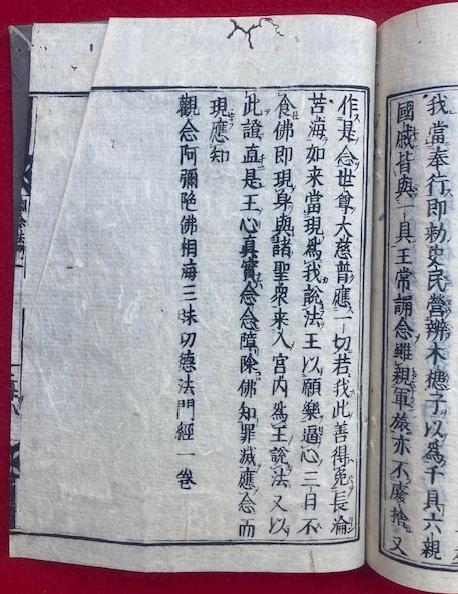 我當奉行即勅史民營辨木槵子以爲千具六親
國戚皆與一具王常誦念雖親軍旅亦不廢捨又
作是念世尊大慈普應一切若我此善得免長淪
苦海如來當現爲我說法王以願樂逼心三日不
食佛即現身與諸聖衆來入宮內爲王說法又以
此證直是王心眞實念念障除佛知罪滅應念而
現應知
觀念阿彌陀佛相海三昧功德法門經一卷